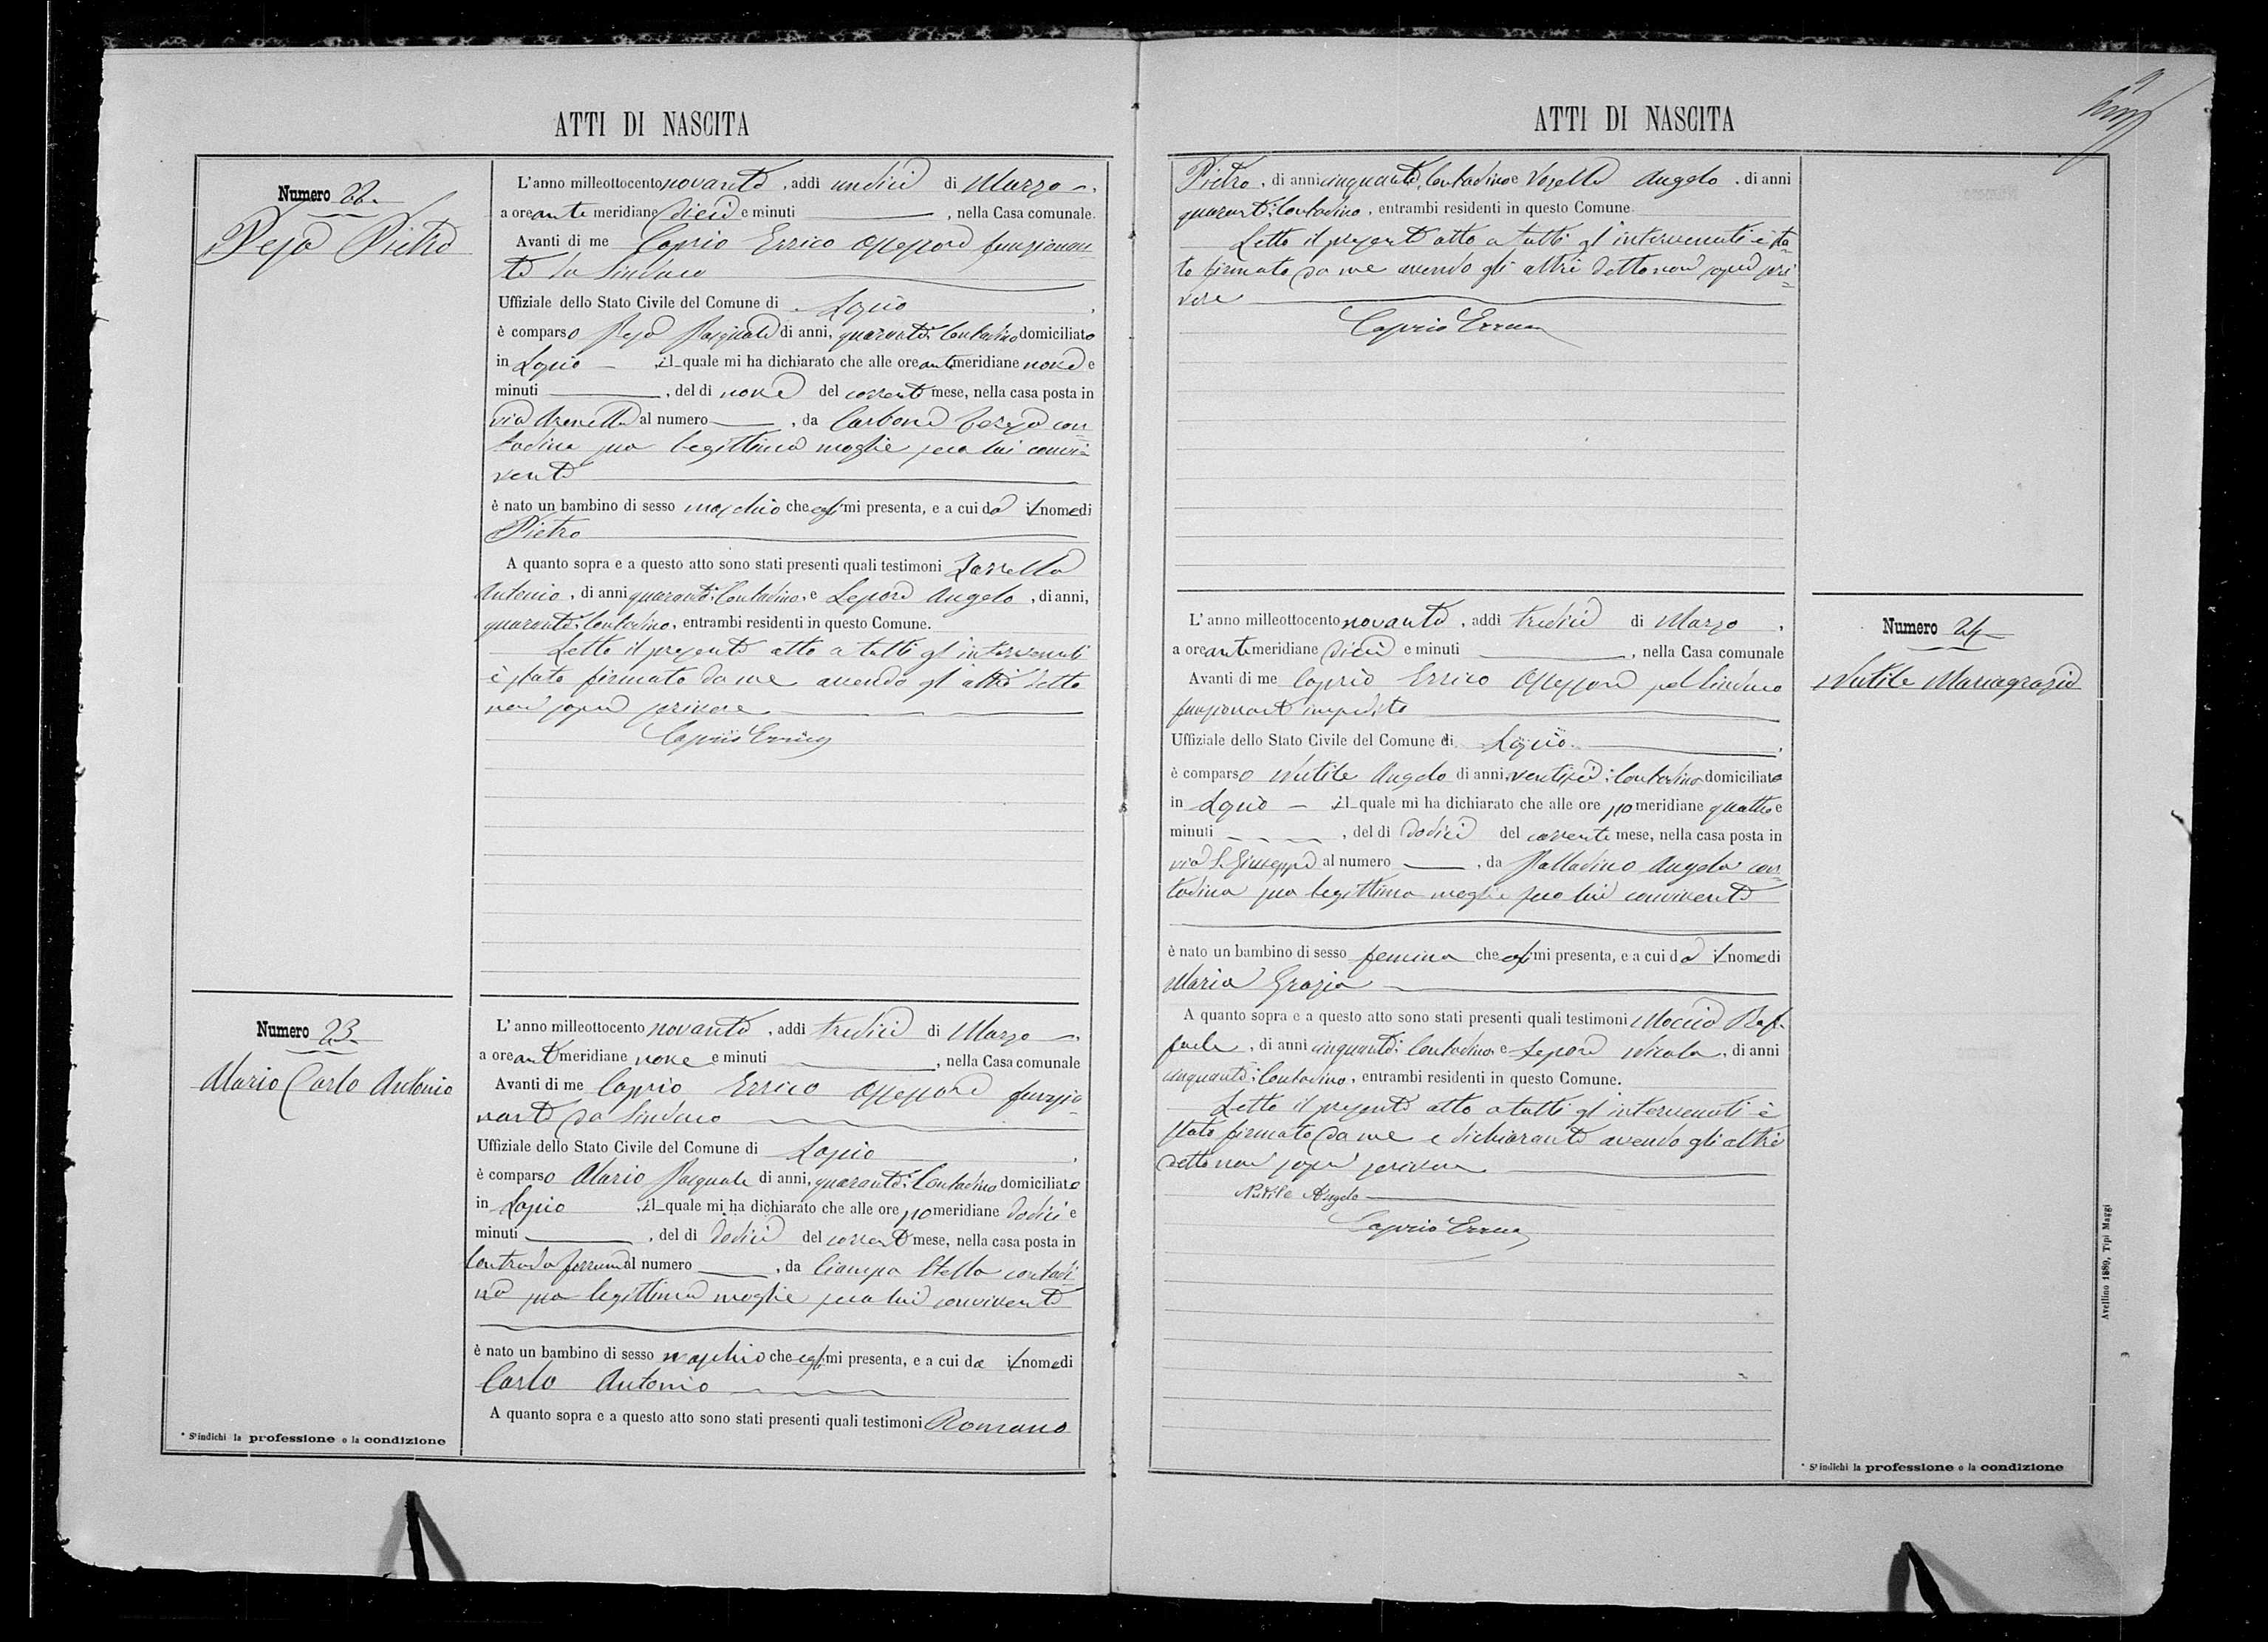 ATTI DI NASCITA
Numero 22.
Pesa Pietro
L'anno milleottocentonovanta, addì undici di Marzo
a ore ante meridiane dieci e minuti , nella Casa comunale.
Avanti di me Caprio Errico Assessore funzionan
te da Sindaco
Uffiziale dello Stato Civile del Comune di Lapio
è comparso Pesa Pasquale di anni, quaranta, Contadino domiciliato
in Lapio il quale mi ha dichiarato che alle ore antimeridiane nove e
minuti , del dì nove del corrente mese, nella casa posta in
via Arenella al numero , da Carbone con
tadina sua legittima moglie seco lui convi
vente
è nato un bambino di sesso maschio che egli mi presenta, e a cui da il nome di
Pietro
A quanto sopra e a questo atto sono stati presenti quali testimoni Zarrella
Antonio, di anni quaranta, Contadino, e Lepore Angelo, di anni,
quaranta, Contadino, entrambi residenti in questo Comune.
Letto il presente atto a tutti gl'intervenuti
è stato firmato da me avendo gl'altri detto
non sapere scrivere
Caprio Errico
Numero 23
Alario Carlo Antonio
L'anno milleottocento novanta, addì tredici di Marzo
a ore ante meridiane nove e minuti , nella Casa comunale
Avanti di me Caprio Errico Assessore funzio
nante da Sindaco
Uffiziale dello Stato Civile del Comune di Lapio
è comparso Alario Pasquale di anni, quaranta, Contadino domiciliato
in Lapio , il quale mi ha dichiarato che alle ore pomeridiane dodici e
minuti , del dì dodici del corrente mese, nella casa posta in
Contrada al numero , da Ciampa Stella contadi
na sua legittima moglie seco lui convivente
è nato un bambino di sesso maschio che egli mi presenta, e a cui da il nome di
Carlo Antonio
A quanto sopra e a questo atto sono stati presenti quali testimoni Romano
* S'indichi la professione o la condizione
ATTI DI NASCITA
Pietro, di anni cinquanta, Contadino e Angelo, di anni
quaranta, Contadino, entrambi residenti in questo Comune.
Letto il presente atto a tutti gl'intervenuti è sta
to firmato da me avendo gli altri detto non sapere scri
vere
Caprio Errico
L'anno milleottocento novanta, addì tredici di Marzo
a ore antimeridiane dieci e minuti , nella Casa comunale
Avanti di me Caprio Errico Assessore pel Sindaco
funzionante impedito
Uffiziale dello Stato Civile del Comune di Lapio.
è comparso Nutile Angelo di anni ventisei, Contadino domiciliato
in Lapio il quale mi ha dichiarato che alle ore pomeridiane quattro e
minuti , del dì dodici del corrente mese, nella casa posta in
via S. Giuseppe al numero , da Palladino Angela con
tadina sua legittima moglie seco lui convivente
è nato un bambino di sesso femina che egli mi presenta, e a cui da il nome di
Maria Grazia
A quanto sopra e a questo atto sono stati presenti quali testimoni Moccia Raf
faele, di anni cinquanta, Contadino, e Lepore Nicola, di anni
cinquanta, Contadino, entrambi residenti in questo Comune.
Letto il presente atto a tutti gl'intervenuti è
stato firmato da me e dichiarante avendo gli altri
detto non sapere scrivere
Nutile Angelo
Caprio Errico
Numero 24
Nutile Mariagrazia
* S'indichi la professione o la condizione
Avellino 1889, Tipi Maggi